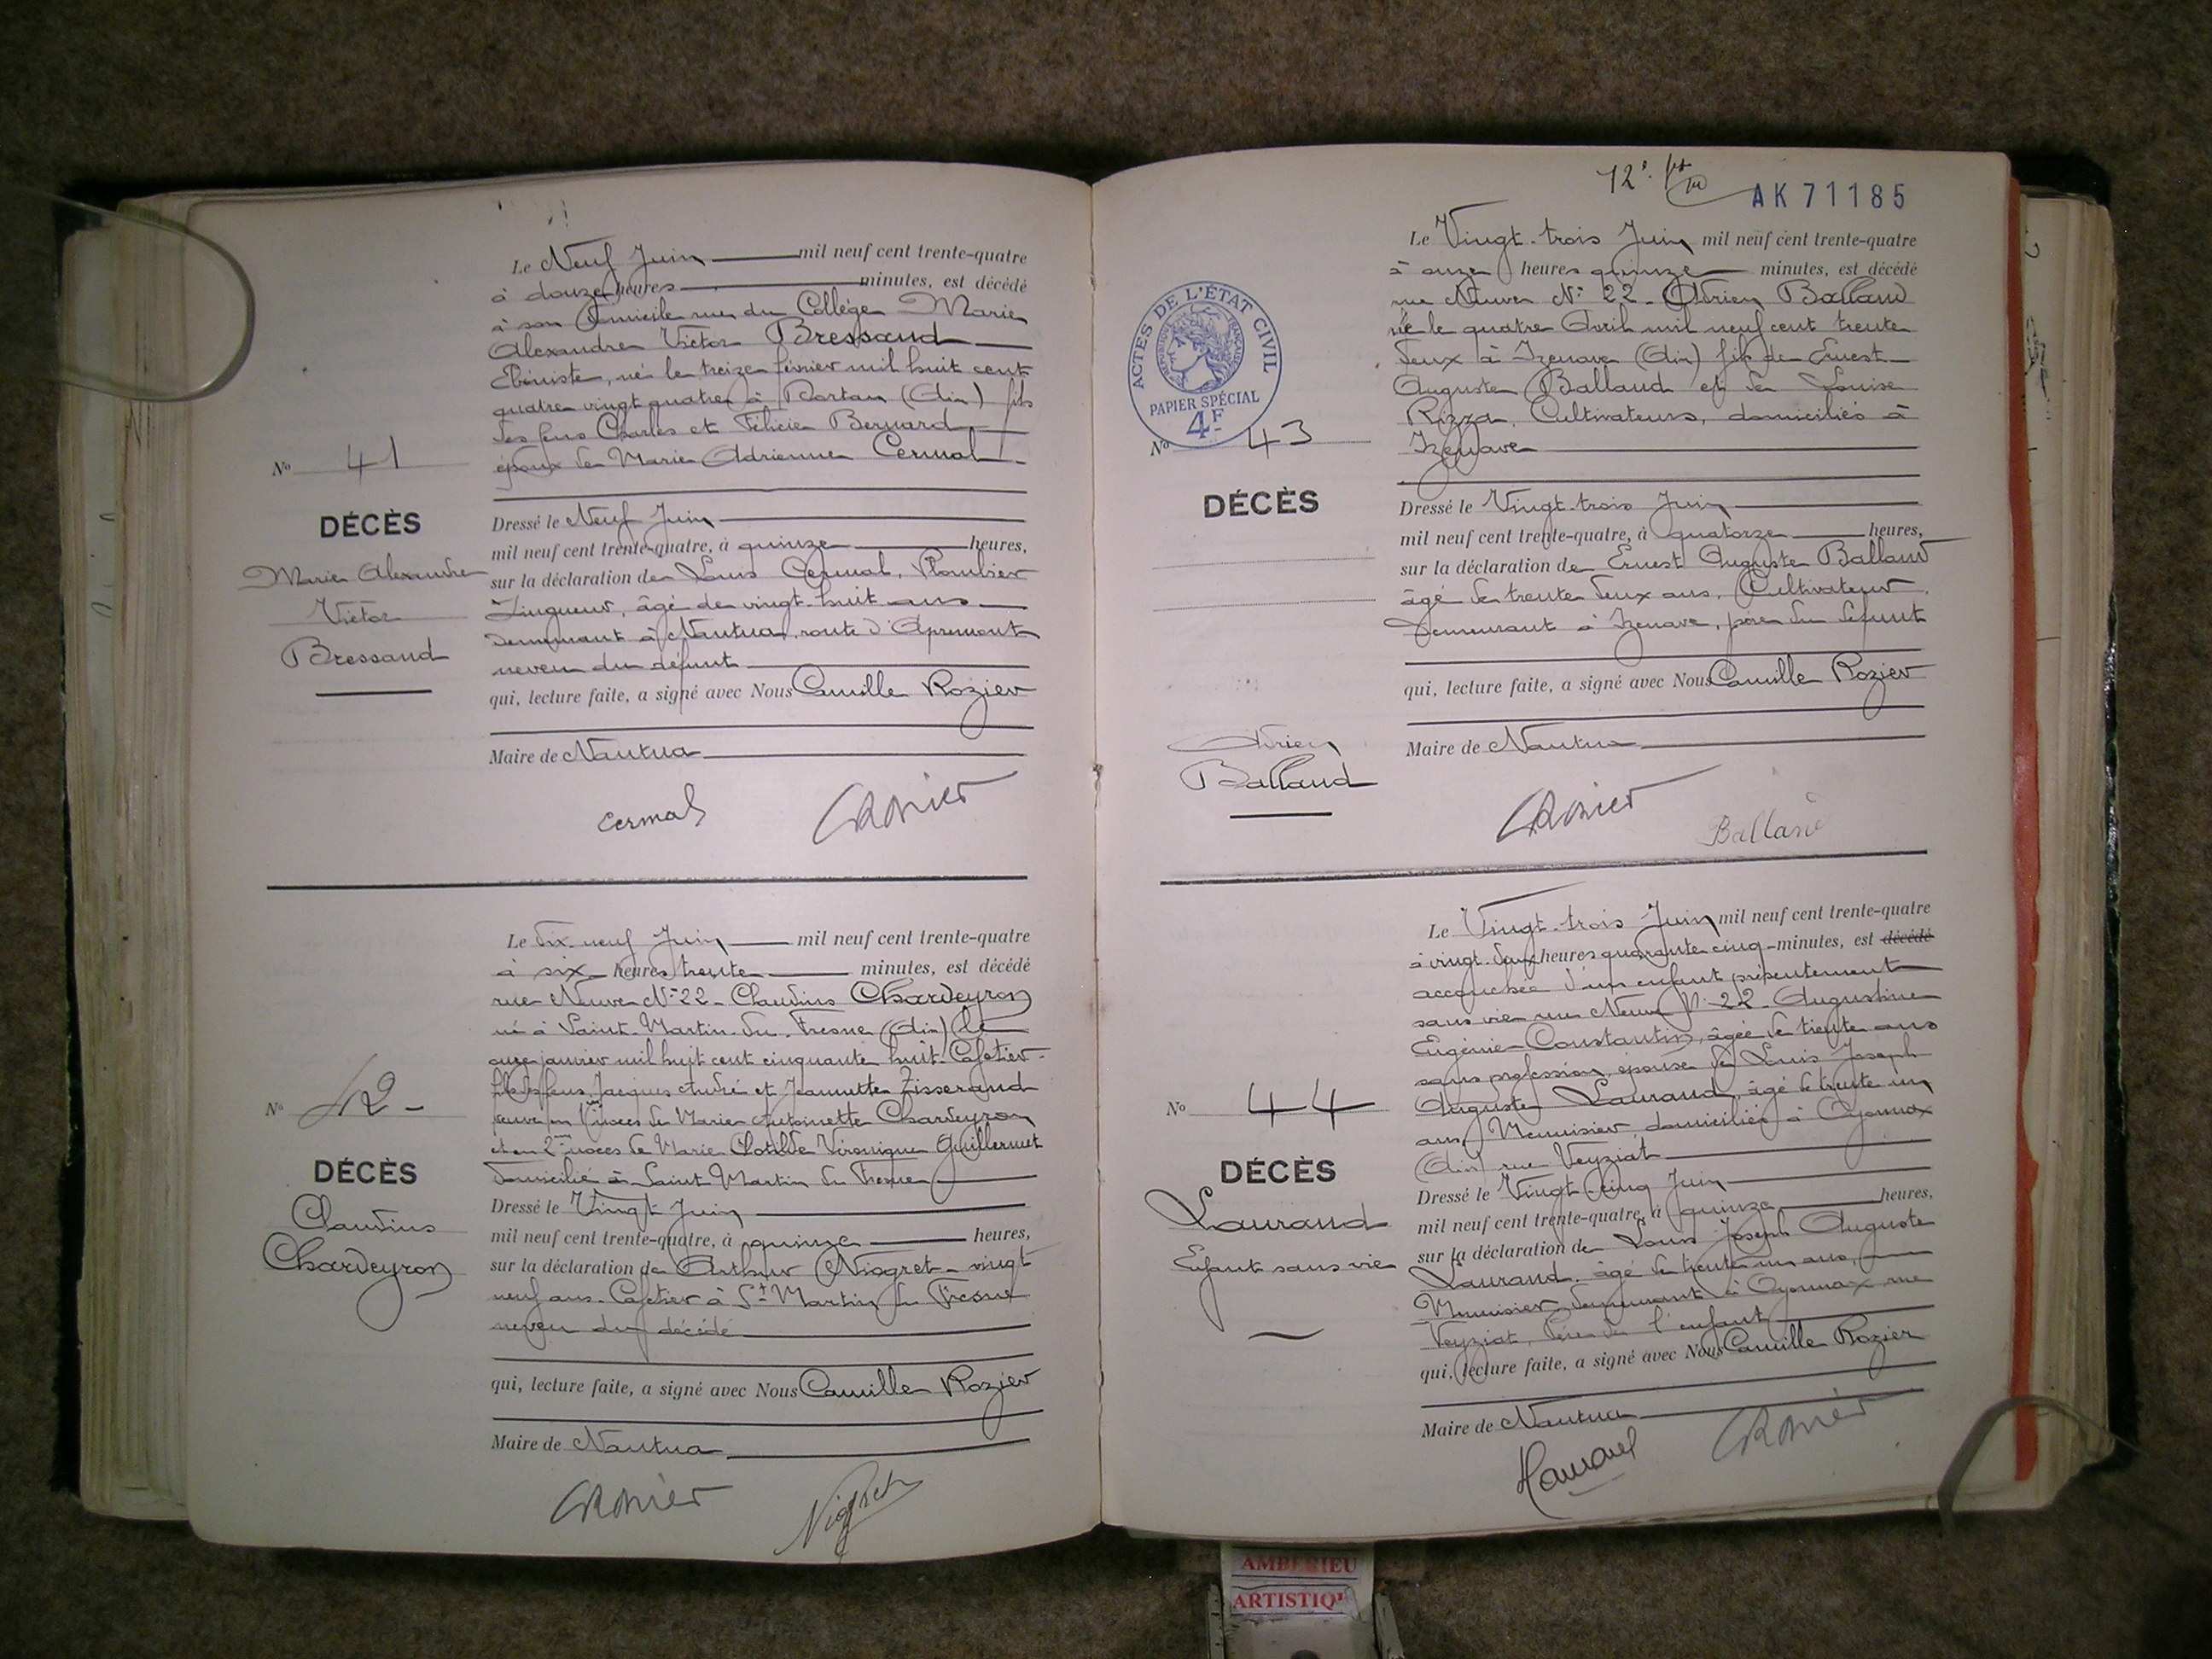 Le Neuf Juin mil neuf cent trente-quatre
à douze heures minutes, est décédé
à son domicile rue du Collège Marie
Alexandre Victor Bressand
Ebéniste, né le treize février mil huit cent
quatre vingt quatre à Dortan (Ain) fils
des feus Charles et Félicie Bernard
époux de Marie Adrienne Cermal
No 41
DÉCÈS
Marie Alexandre
Victor
Bressand
Dressé le Neuf Juin
mil neuf cent trente-quatre, à quinze heures,
sur la déclaration de Louis Cermal, Plombier
Zingueur, âgé de vingt-huit ans
demeurant à Nantua, route d'Apremont
neveu du défunt
qui, lecture faite, a signé avec Nous Camille Rozier
Maire de Nantua
Cermal CRozier
Le dix-neuf Juin mil neuf cent trente-quatre
à six heures trente minutes, est décédé
rue Neuve N° 22 - Claudius Chardeyron
né à Saint-Martin-du-Fresne (Ain) le
onze janvier mil huit cent cinquante huit. Cafetier -
fils des feus Jacques André et Jeannette Tisserand
veuf en noces de Marie Antoinette Chardeyron
et en 2mes noces de Marie Clotilde Véronique Guillermet
domicilié à Saint Martin du Fresne
No 42 -
DÉCÈS
Claudius
Chardeyron
Dressé le Vingt Juin
mil neuf cent trente-quatre, à quinze heures,
sur la déclaration de Arthur Niogret - vingt
neuf ans - Cafetier à St Martin du Fresne
neveu du décédé
qui, lecture faite, a signé avec Nous Camille Rozier
Maire de Nantua
CRozier Niogret
AK 71185
ACTES DE L'ÉTAT CIVIL
RÉPUBLIQUE FRANÇAISE
PAPIER SPÉCIAL
4F
Le Vingt-trois Juin mil neuf cent trente-quatre
à onze heures quinze minutes, est décédé
rue Neuve N° 22 - Adrien Balland
né le quatre Avril mil neuf cent trente
deux à Izenave (Ain) fils de Ernest
Auguste Balland et de Louise
Rizza, Cultivateurs, domiciliés à
Izenave
No 43
DÉCÈS
Adrien
Balland
Dressé le Vingt-trois Juin
mil neuf cent trente-quatre, à quatorze heures,
sur la déclaration de Ernest Auguste Balland
âgé de trente deux ans, Cultivateur,
demeurant à Izenave, père du défunt
qui, lecture faite, a signé avec Nous Camille Rozier
Maire de Nantua
CRozier Balland
Le Vingt-trois Juin mil neuf cent trente-quatre
à vingt-deux heures quarante cinq minutes, est décédé
accouchée d'un enfant présentement
sans vie rue Neuve N° 22 - Augustine
Eugénie Constantin, âgée de trente ans
sans profession, épouse de Louis Joseph
Auguste Laurand, âgé de trente un
ans, Menuisier, domiciliés à Oyonnax
(Ain) rue Veyziat
No 44
DÉCÈS
Laurand
Enfant sans vie
Dressé le Vingt-cinq Juin
mil neuf cent trente-quatre, à quinze heures,
sur la déclaration de Louis Joseph Auguste
Laurand, âgé de trente un ans,
Menuisier demeurant à Oyonnax rue
Veyziat, Père de l'enfant
qui, lecture faite, a signé avec Nous Camille Rozier
Maire de Nantua
Laurand CRozier
AMBERIEU
ARTISTIQ